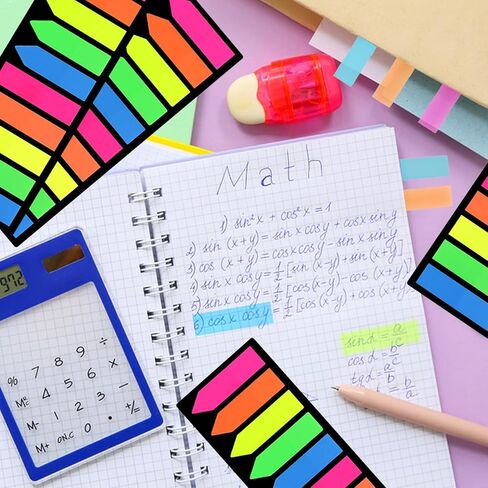 Math
1) sin²x + cos²x = 1
2) sin (x+y) = sin x cosy + cosx sin y
3) cos (x+y) = cosx cosy - sinx sin y
4) sin x cosy = 1/2 [sin(x-y) + sin(x+y)]
5) sinx cosy = 1/2 [cos(x-y) - cos(x+y)]
6) cosx cosy = 1/2 [cos(x-y) + cos(x+y)]
sin α = a/c
cos α = b/c
tg α = a/b
= b/a
972
% 7 8 9 ÷
4 5 6 ×
M- 1 2 3 -
M+ ON.C 0 . +/=